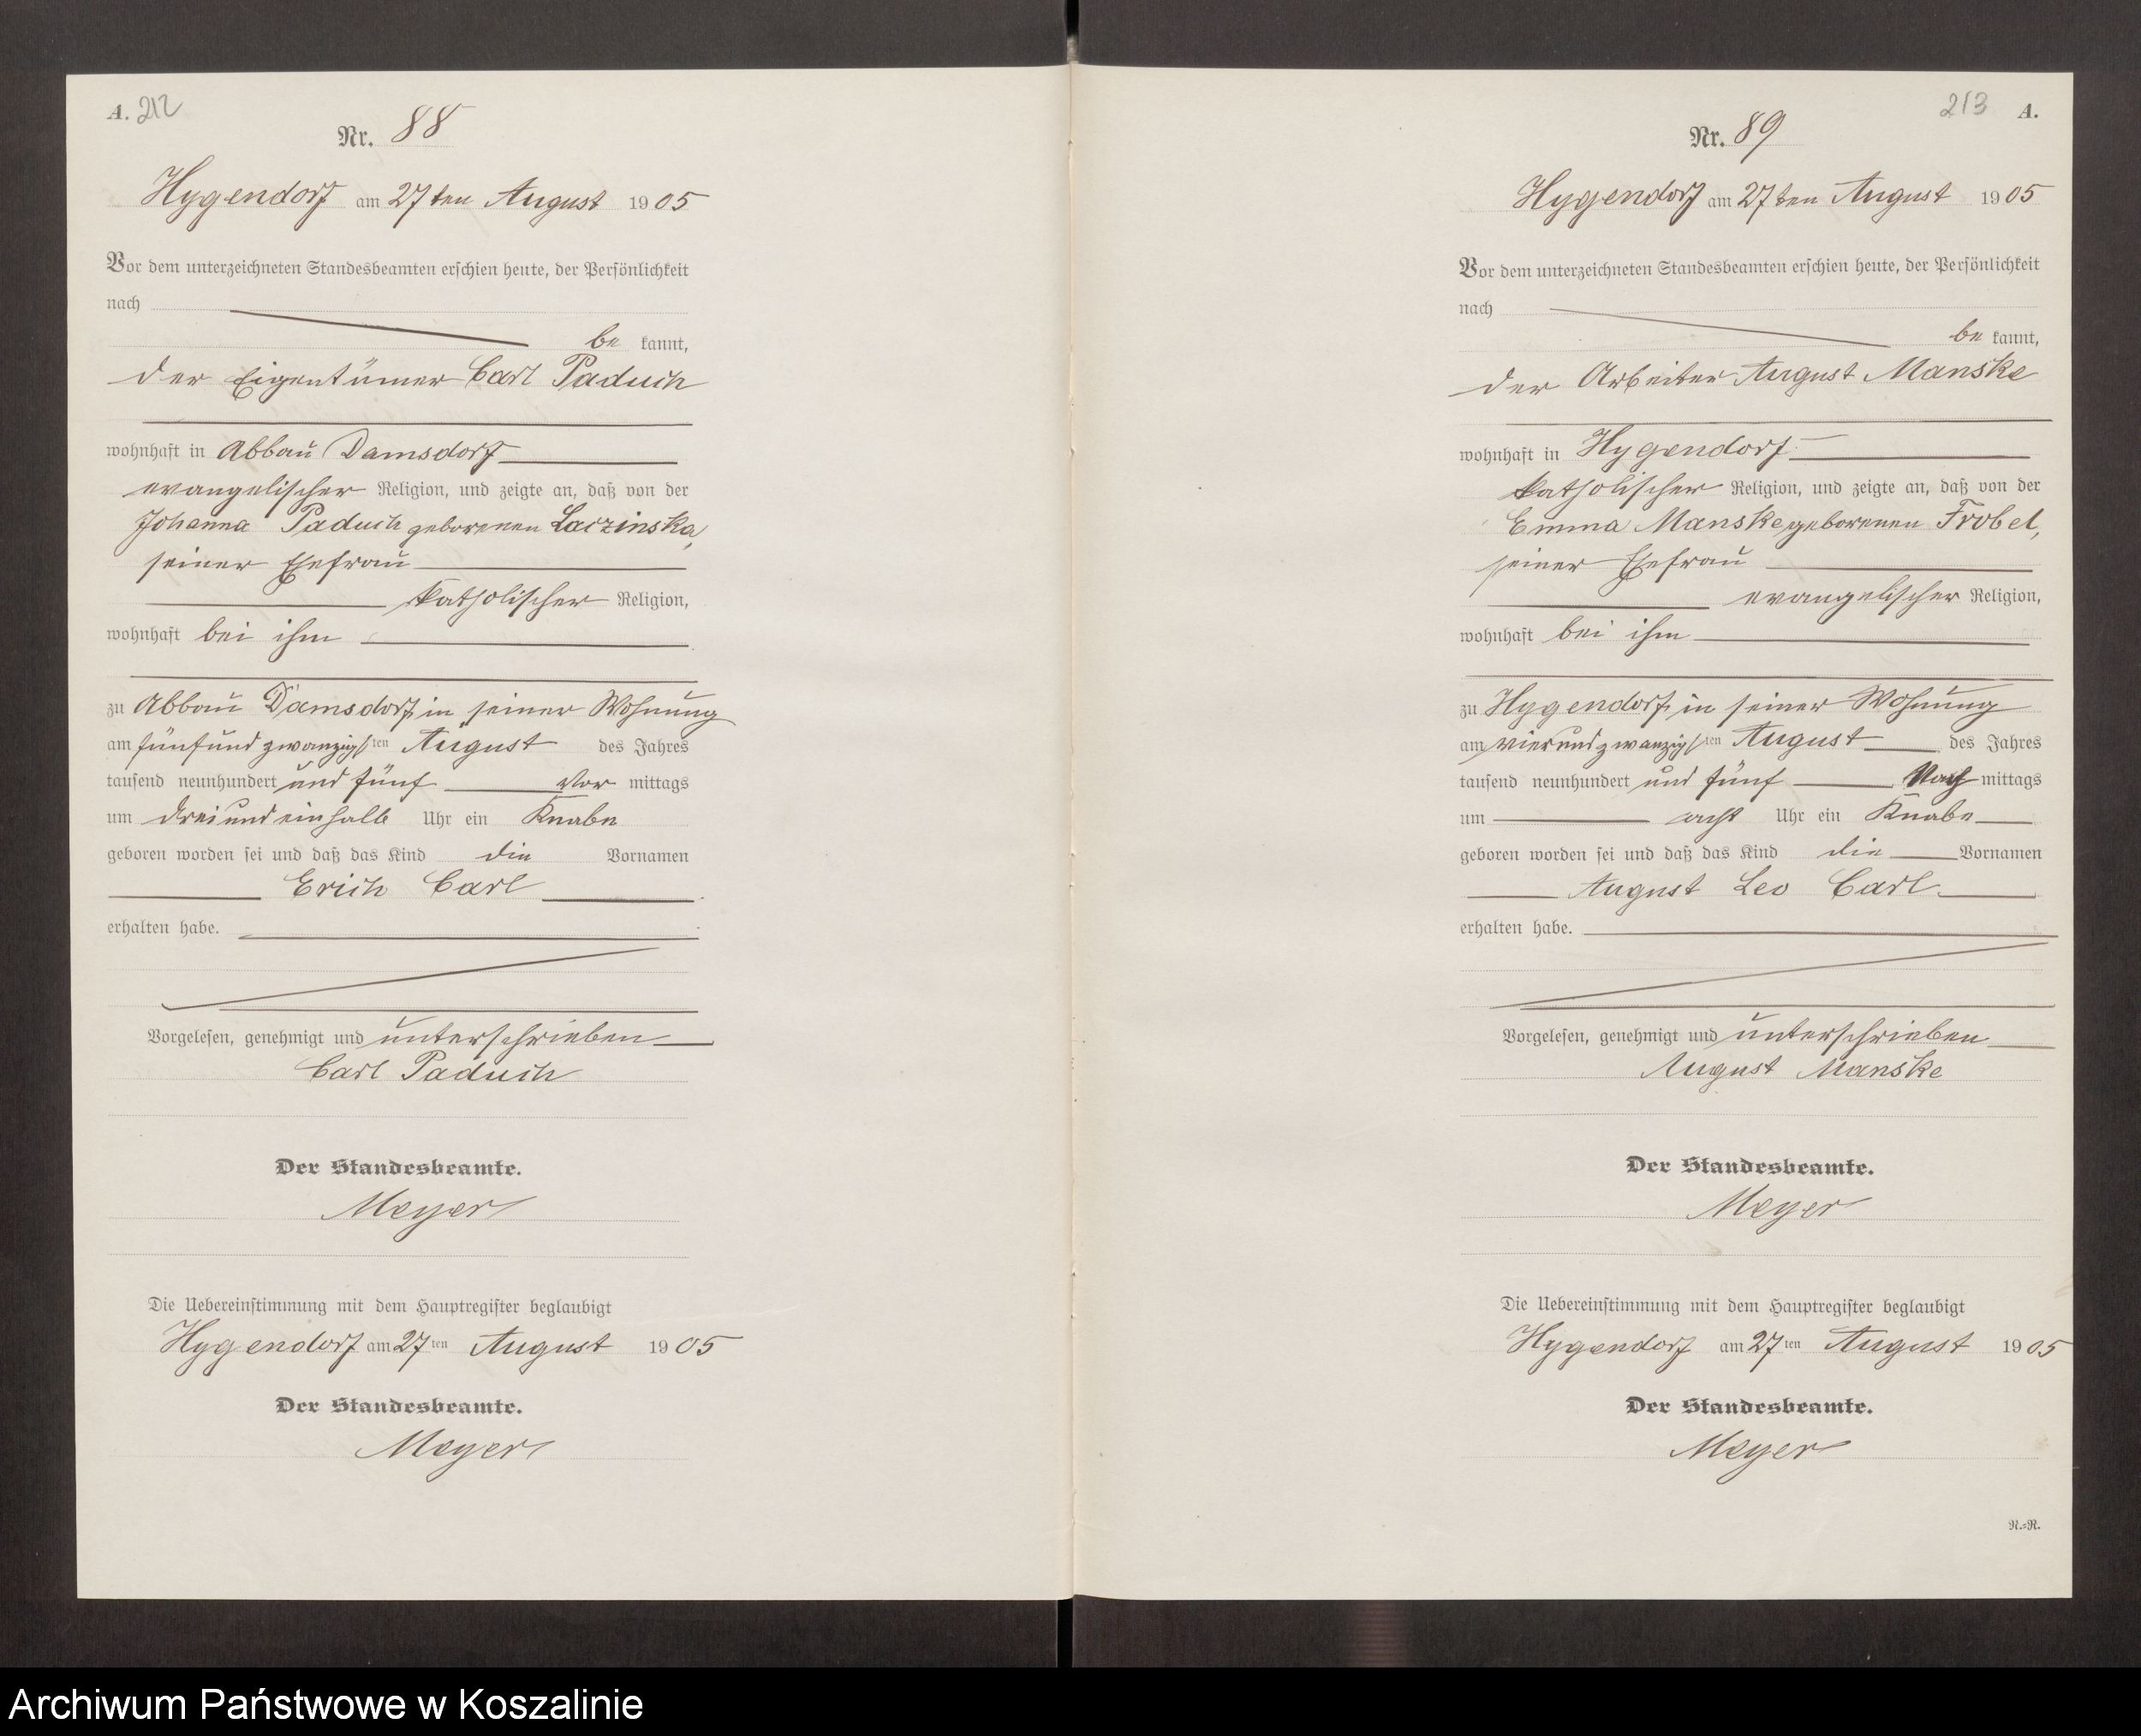 A. 212
Nr. 88
Hygendorf am 27ten August 1905
Vor dem unterzeichneten Standesbeamten erschien heute, der Persönlichkeit
nach
be kannt,
der Eigentümer Carl Paduch
wohnhaft in Abbau Damsdorf
evangelischer Religion, und zeigte an, daß von der
Johanna Paduch geborenen Laczinska,
seiner Ehefrau
katholischer Religion,
wohnhaft bei ihm
zu Abbau Damsdorf in seiner Wohnung
am fünfundzwanzigsten August des Jahres
tausend neunhundert und fünf Vor mittags
um drei und einhalb Uhr ein Knabe
geboren worden sei und daß das Kind die Vornamen
Erich Carl
erhalten habe.
Vorgelesen, genehmigt und unterschrieben
Carl Paduch
Der Standesbeamte.
Meyer
Die Uebereinstimmung mit dem Hauptregister beglaubigt
Hygendorf am 27ten August 1905
Der Standesbeamte.
Meyer
213 A.
Nr. 89
Hygendorf am 27ten August 1905
Vor dem unterzeichneten Standesbeamten erschien heute, der Persönlichkeit
nach
be kannt,
der Arbeiter August Manske
wohnhaft in Hygendorf
katholischer Religion, und zeigte an, daß von der
Emma Manske geborenen Frobel,
seiner Ehefrau
evangelischer Religion,
wohnhaft bei ihm
zu Hygendorf in seiner Wohnung
am vierundzwanzigsten August des Jahres
tausend neunhundert und fünf Nach mittags
um acht Uhr ein Knabe
geboren worden sei und daß das Kind die Vornamen
August Leo Carl
erhalten habe.
Vorgelesen, genehmigt und unterschrieben
August Manske
Der Standesbeamte.
Meyer
Die Uebereinstimmung mit dem Hauptregister beglaubigt
Hygendorf am 27ten August 1905
Der Standesbeamte.
Meyer
R.=R.
Archiwum Państwowe w Koszalinie